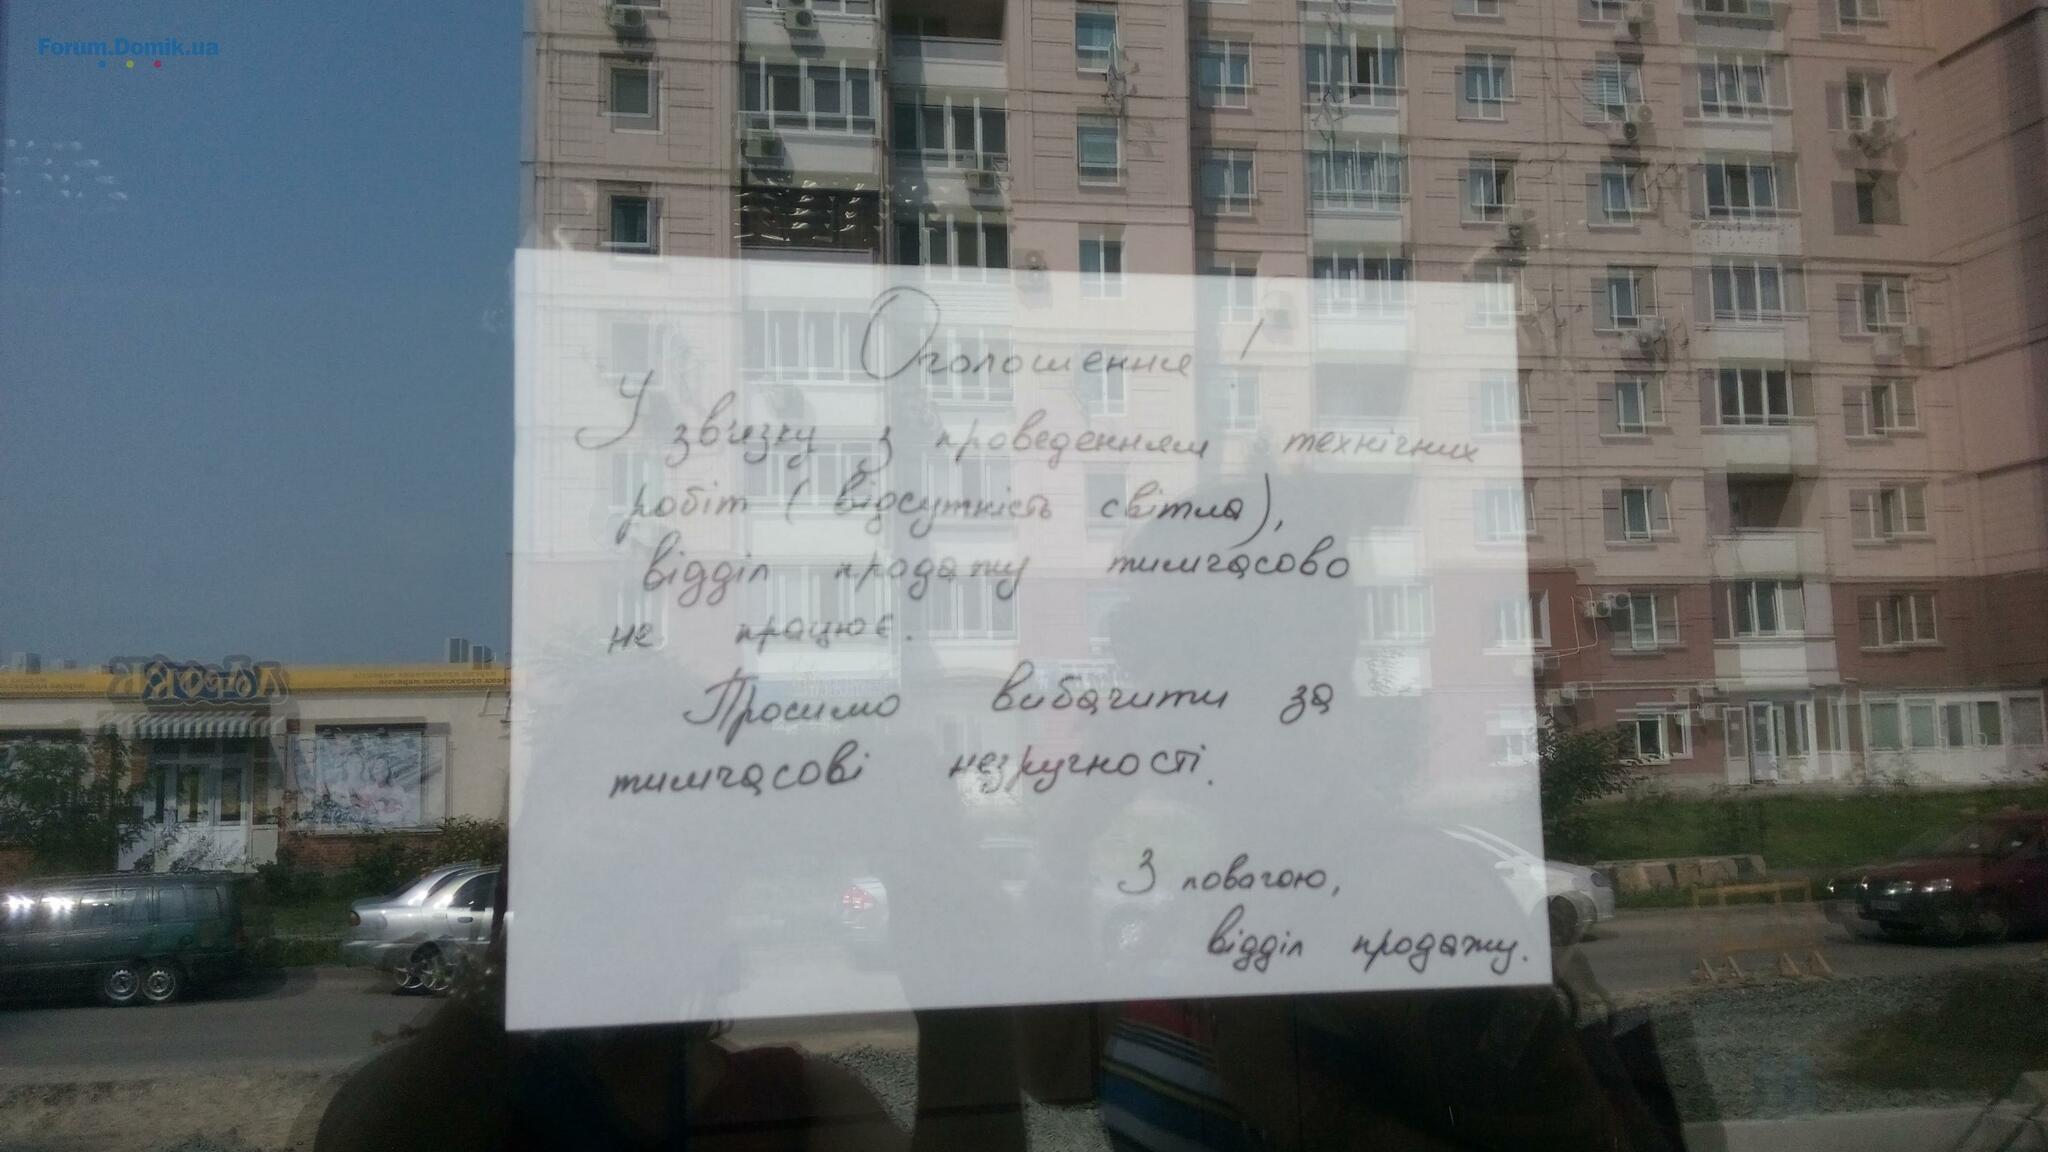 Forum.Domik.ua
Оголошення!
У зв'язку з проведенням технічних
робіт (відсутність світла),
відділ продажу тимчасово
не працює.
Просимо вибачити за
тимчасові незручності.
З повагою,
відділ продажу.